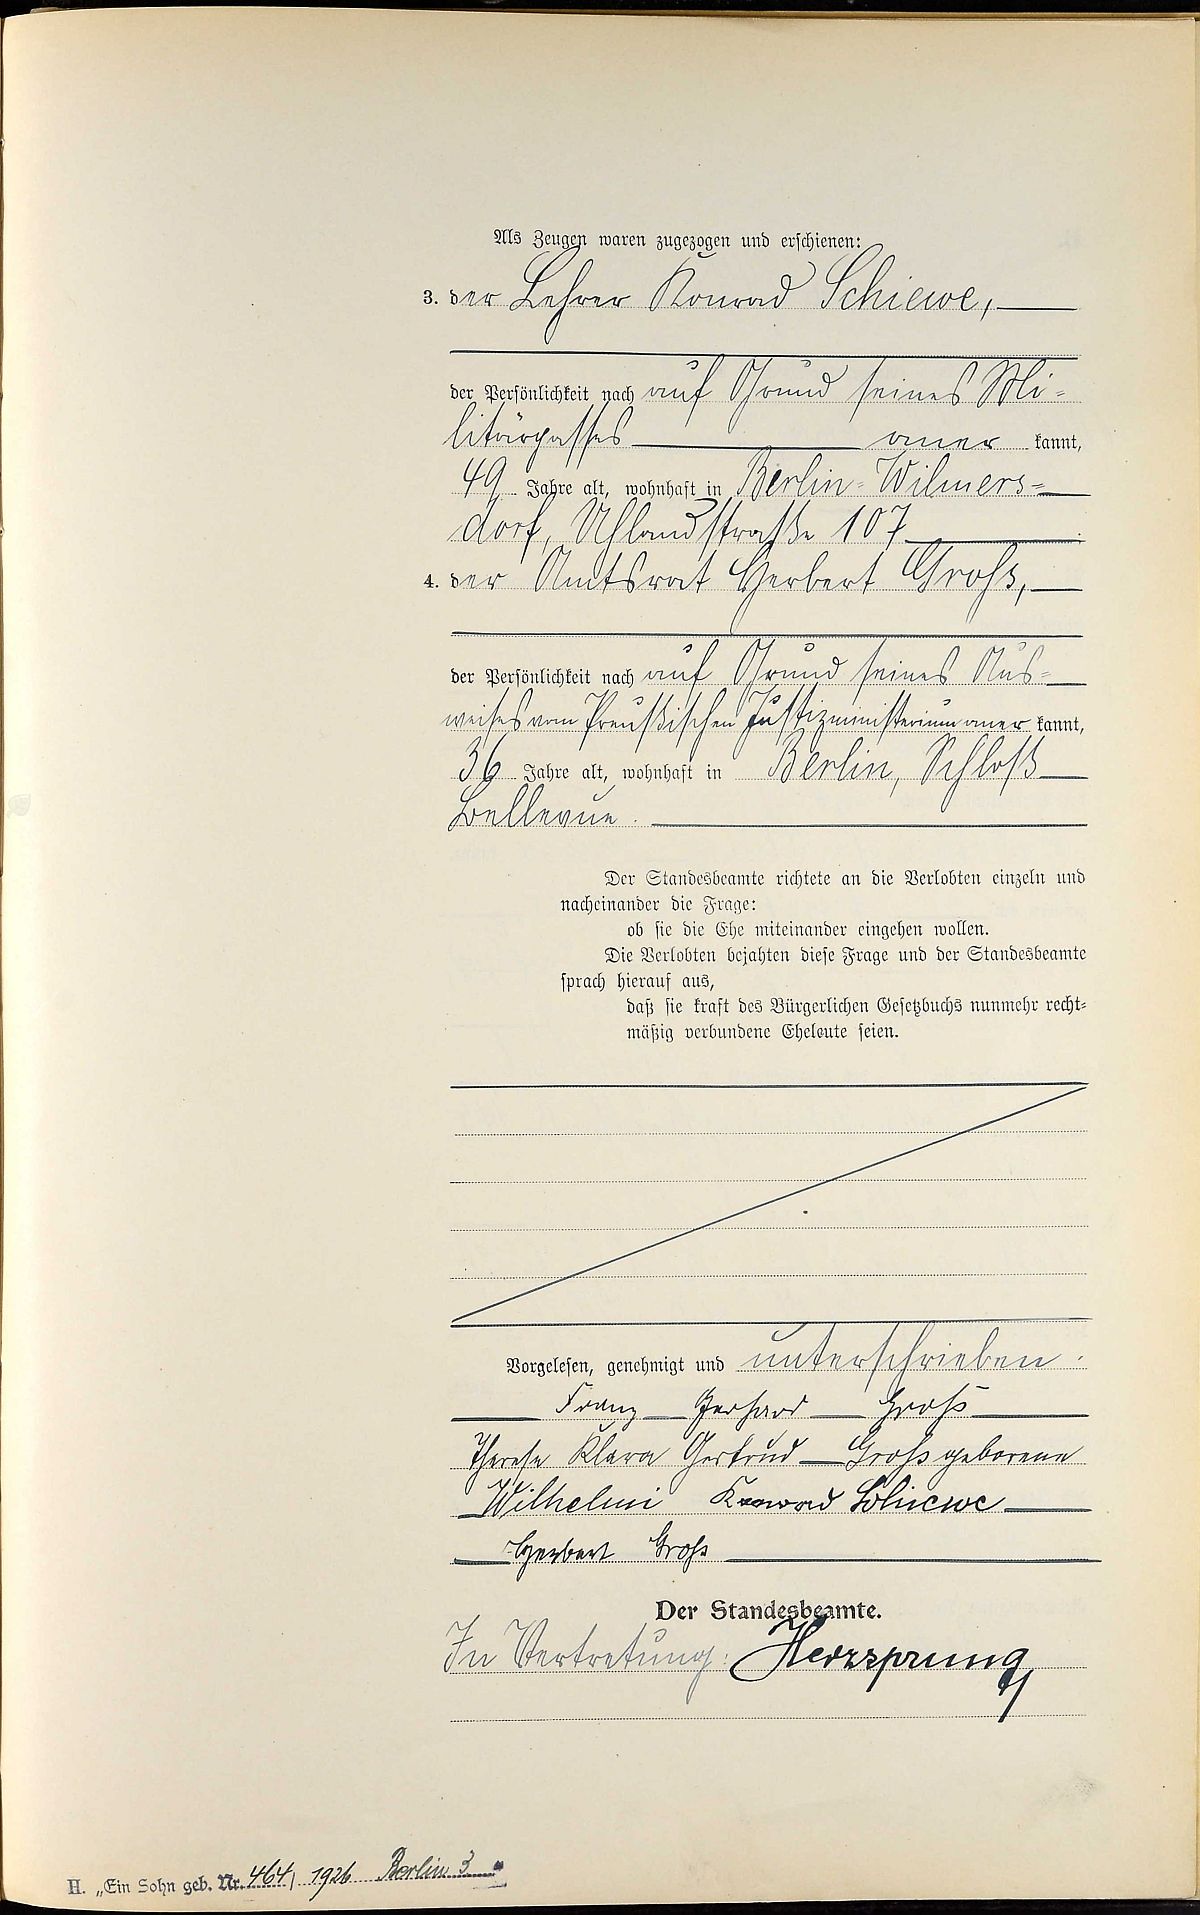 Als Zeugen waren zugezogen und erschienen:
3. der Lehrer Konrad Schiewe,
der Persönlichkeit nach auf Grund seines Mi-
litärpasses aner kannt,
49 Jahre alt, wohnhaft in Berlin-Wilmers-
dorf, Uhlandstraße 107
4. der Amtsrat Herbert Groß,
der Persönlichkeit nach auf Grund seines Aus-
weises vom Preußischen Justizministerium aner kannt,
36 Jahre alt, wohnhaft in Berlin, Schloß
Bellevue.
Der Standesbeamte richtete an die Verlobten einzeln und
nacheinander die Frage:
ob sie die Ehe miteinander eingehen wollen.
Die Verlobten bejahten diese Frage und der Standesbeamte
sprach hierauf aus,
daß sie kraft des Bürgerlichen Gesetzbuchs nunmehr recht-
mäßig verbundene Eheleute seien.
Vorgelesen, genehmigt und unterschrieben.
Franz Gerhard Groß
Therese Klara Gertrud Groß geborene
Wilhelmi Konrad Schiewe
Herbert Groß
Der Standesbeamte.
In Vertretung: Herzsprung
H. „Ein Sohn geb. Nr. 464/1926 Berlin 3"